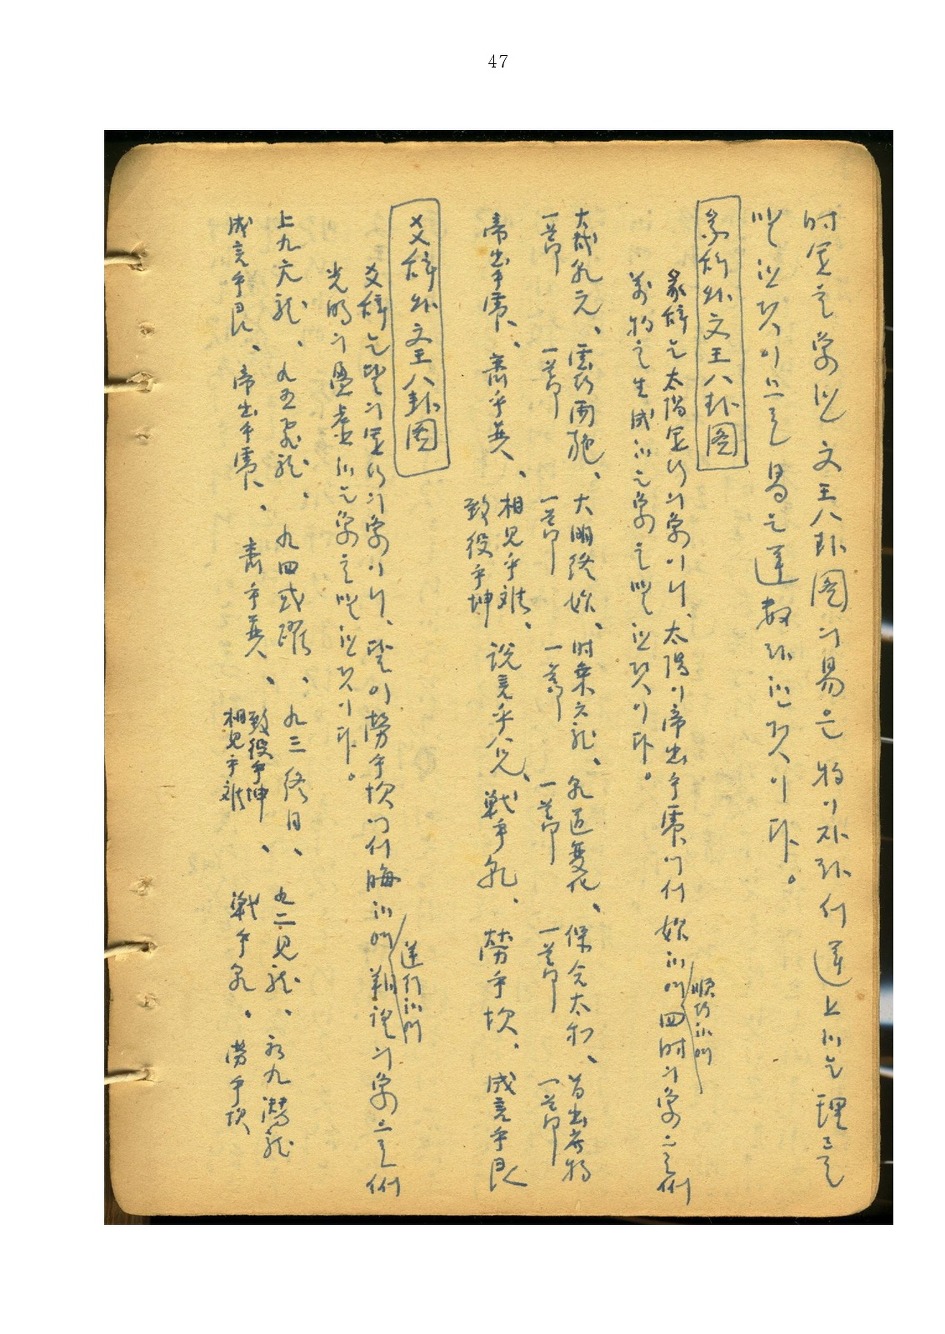 47
時是象 文王八卦圖의 易은 物이 자라서 運上하는 理를
말한 것이므로 易은 運數라 한 것이다。
彖辭와 文王八卦圖
彖辭는 太陽 의 象이니、太陽이 帝出乎震에서 始하여 順行하여 四時의 象으로써
萬物의 生成하는 象을 말한 것이다。
大哉乾元、雲行雨施、大明終始、時乘六龍、乾道變化、保合太和、首出庶物
一節 一節 一節 一節 一節 一節 一節
帝出乎震、齊乎巽、相見乎離、致役乎坤、說言乎兌、戰乎乾、勞乎坎、成言乎艮
爻辭와 文王八卦圖
爻辭는 의 의 象이니、 이 勞乎坎에서 晦하여 逆行하여 朔 의 象으로써
光明의 盈虛하는 象을 말한 것이다。
上九亢龍、九五飛龍、九四或躍、九三終日、九二見龍、初九潛龍
成言乎艮、帝出乎震、齊乎巽、相見乎離 致役乎坤、戰乎乾、勞乎坎